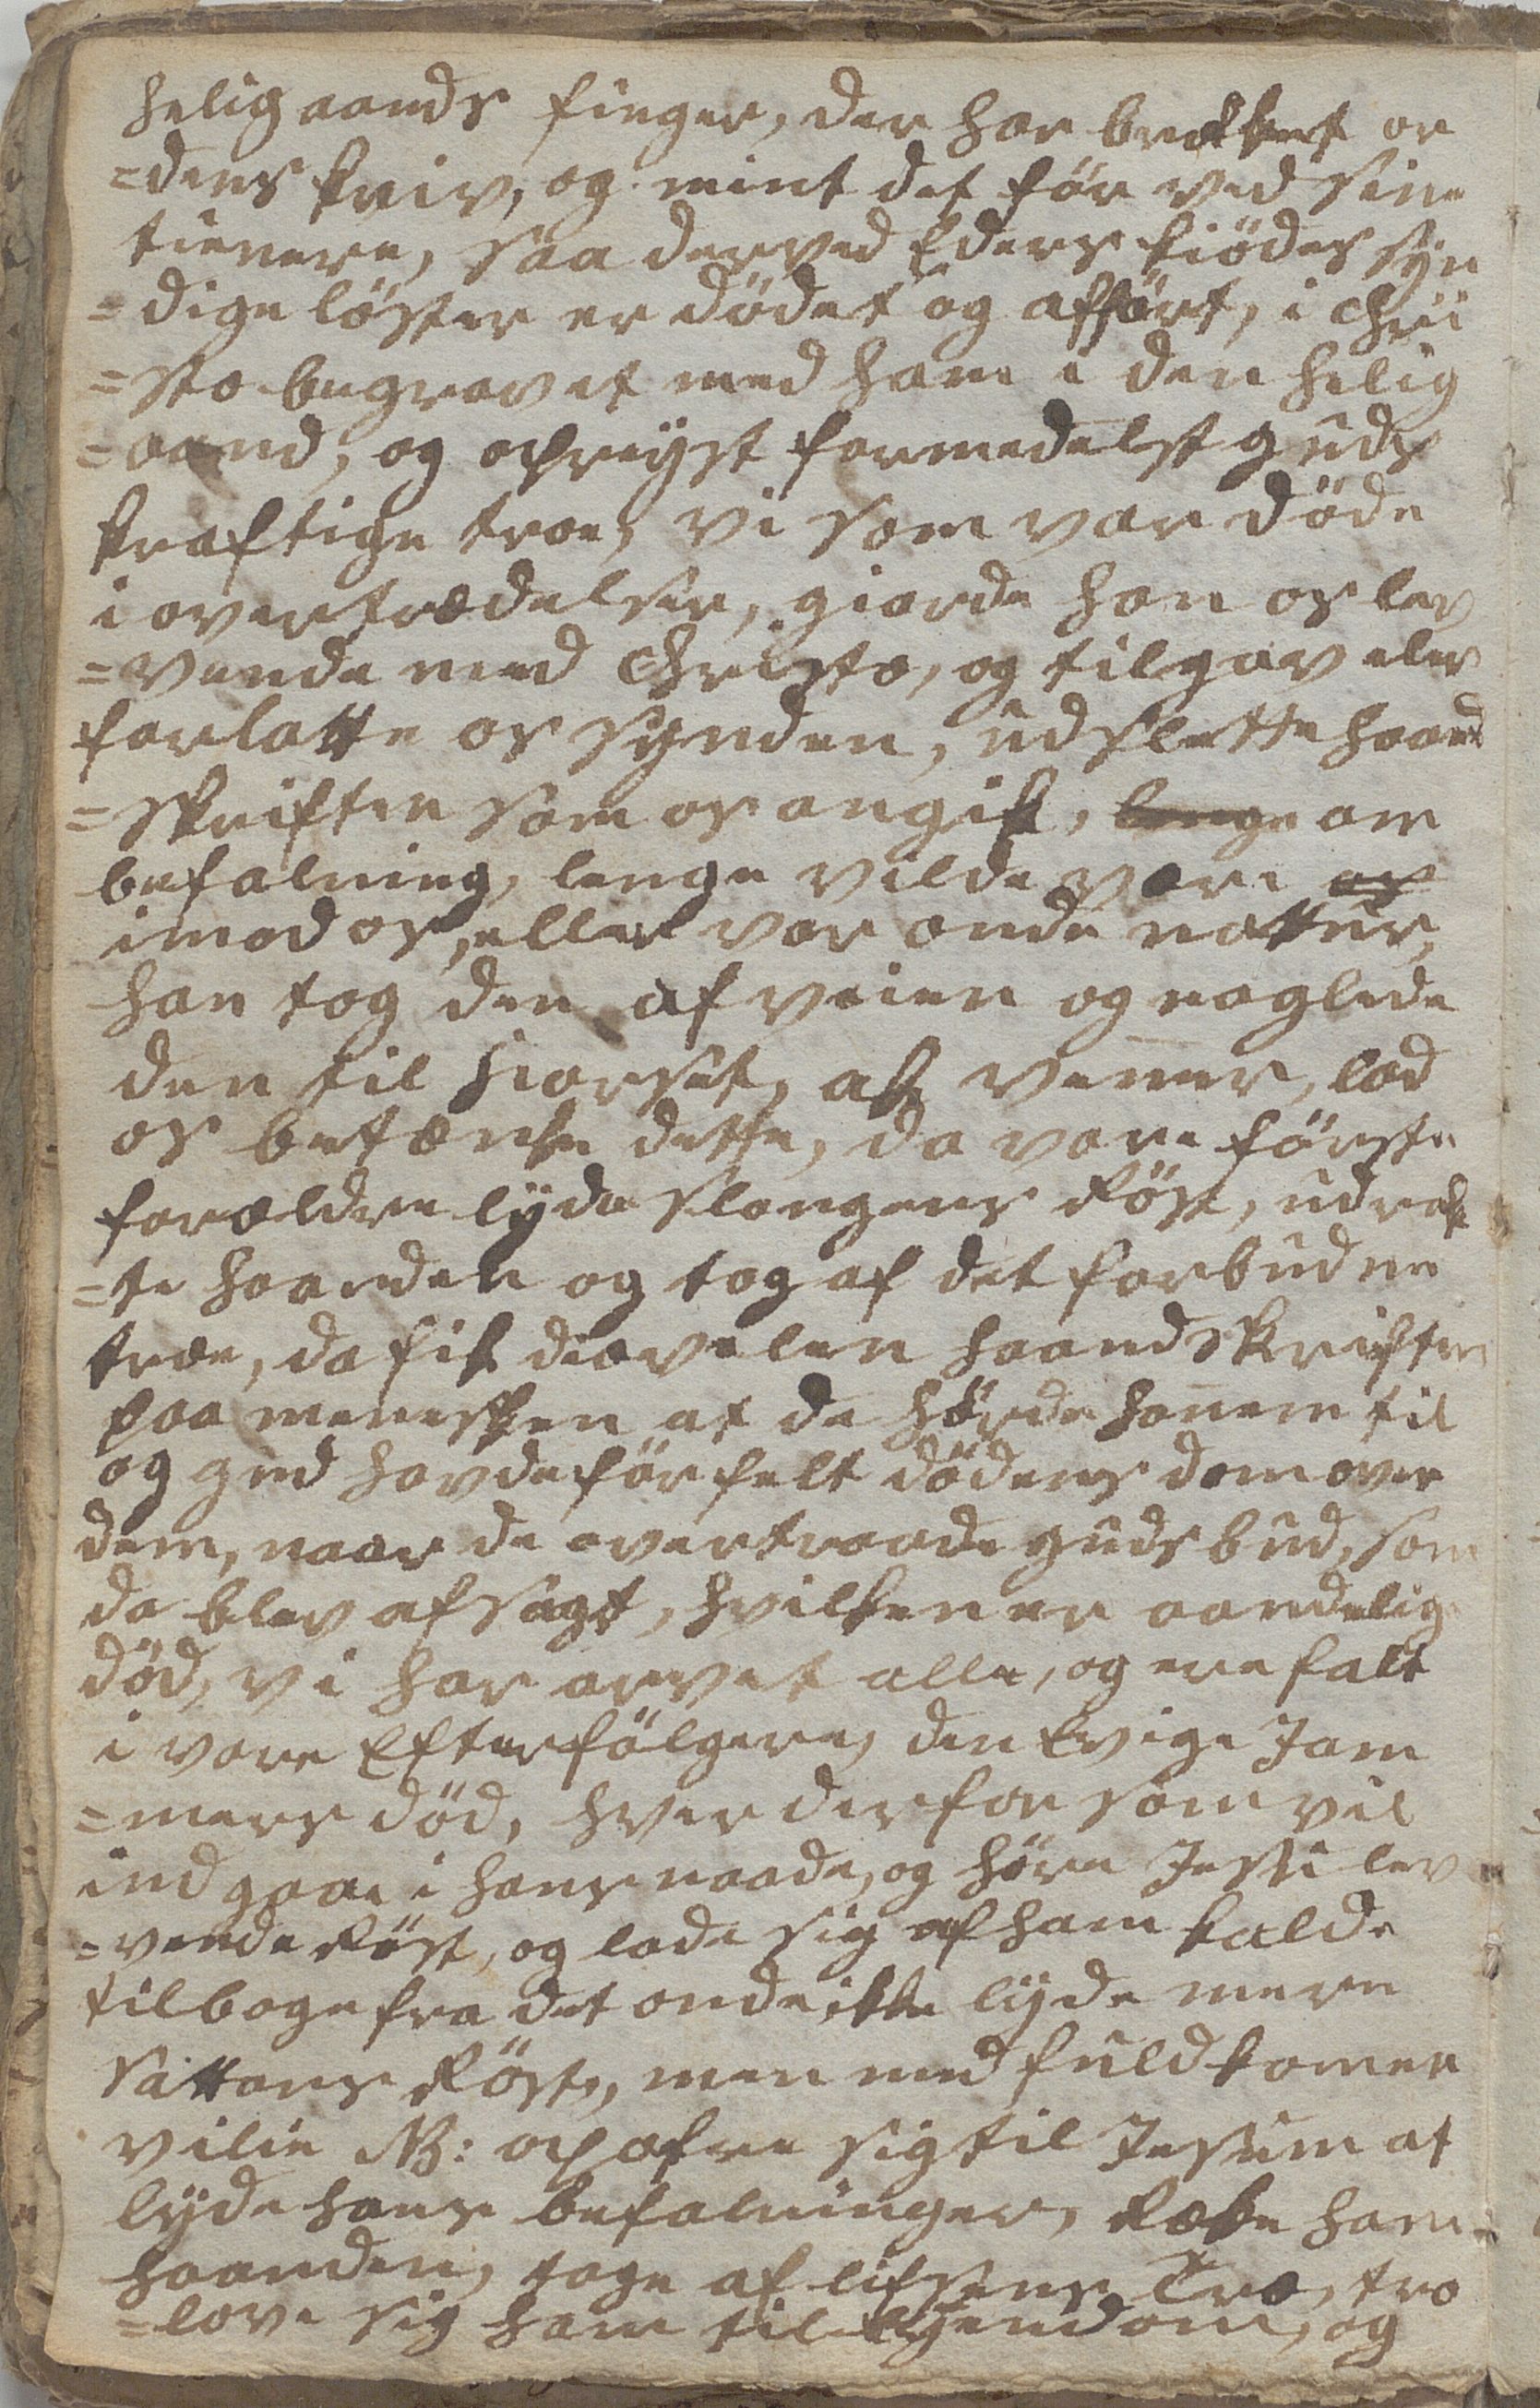 helig aands finger, der har brukket or
=dens kniv, og mint det før ved sine
tienere, saa derved Eders kiødes syn
=dige løster er dødet og afført, i Chri
=sto begravet med ham i den helig
=aand, og opreÿst formedelst guds
kraftige troe, vi som var døde
i overtrædelser, giorde han os lev
=vende med Christo, og tilgav eler
forlatte os sÿnden, udslette haand
=skriften som os angik, lenge om
befalning, lenge vilde være os
imod os, eller vor onde nattur,
han tog den af veien og naglede
den til korset, ak venner, lad
os betænke dette, da vore første
forældre lÿde slangens Røst, udrak
=te haanden og tog af det forbudne
træe, da fik diævelen haandskriften
paa menesken at de hørde hannem til
og gud havde før felt dødens dom over
dem, naar de overtraade guds bud, som
da blev afsagt, hvilken er aandelig
død, vi har arvet alle, og ere falt
i vore Efterfølgere, den Evige Jam
=mers død, hver derfor som vil
indgaae i hans naade, og høre Jesu lev
=vende Røst, og lade sig af ham kalde
tilbage fra det onde ikke lÿde mere
Sattans Røst, men med fuldkomen
vilie NB: opofre sig til Jesum at
lÿde hans befalninger, Række ham
haanden, tage af lifsens Træ, tro
=love sig ham til Ejendom, og